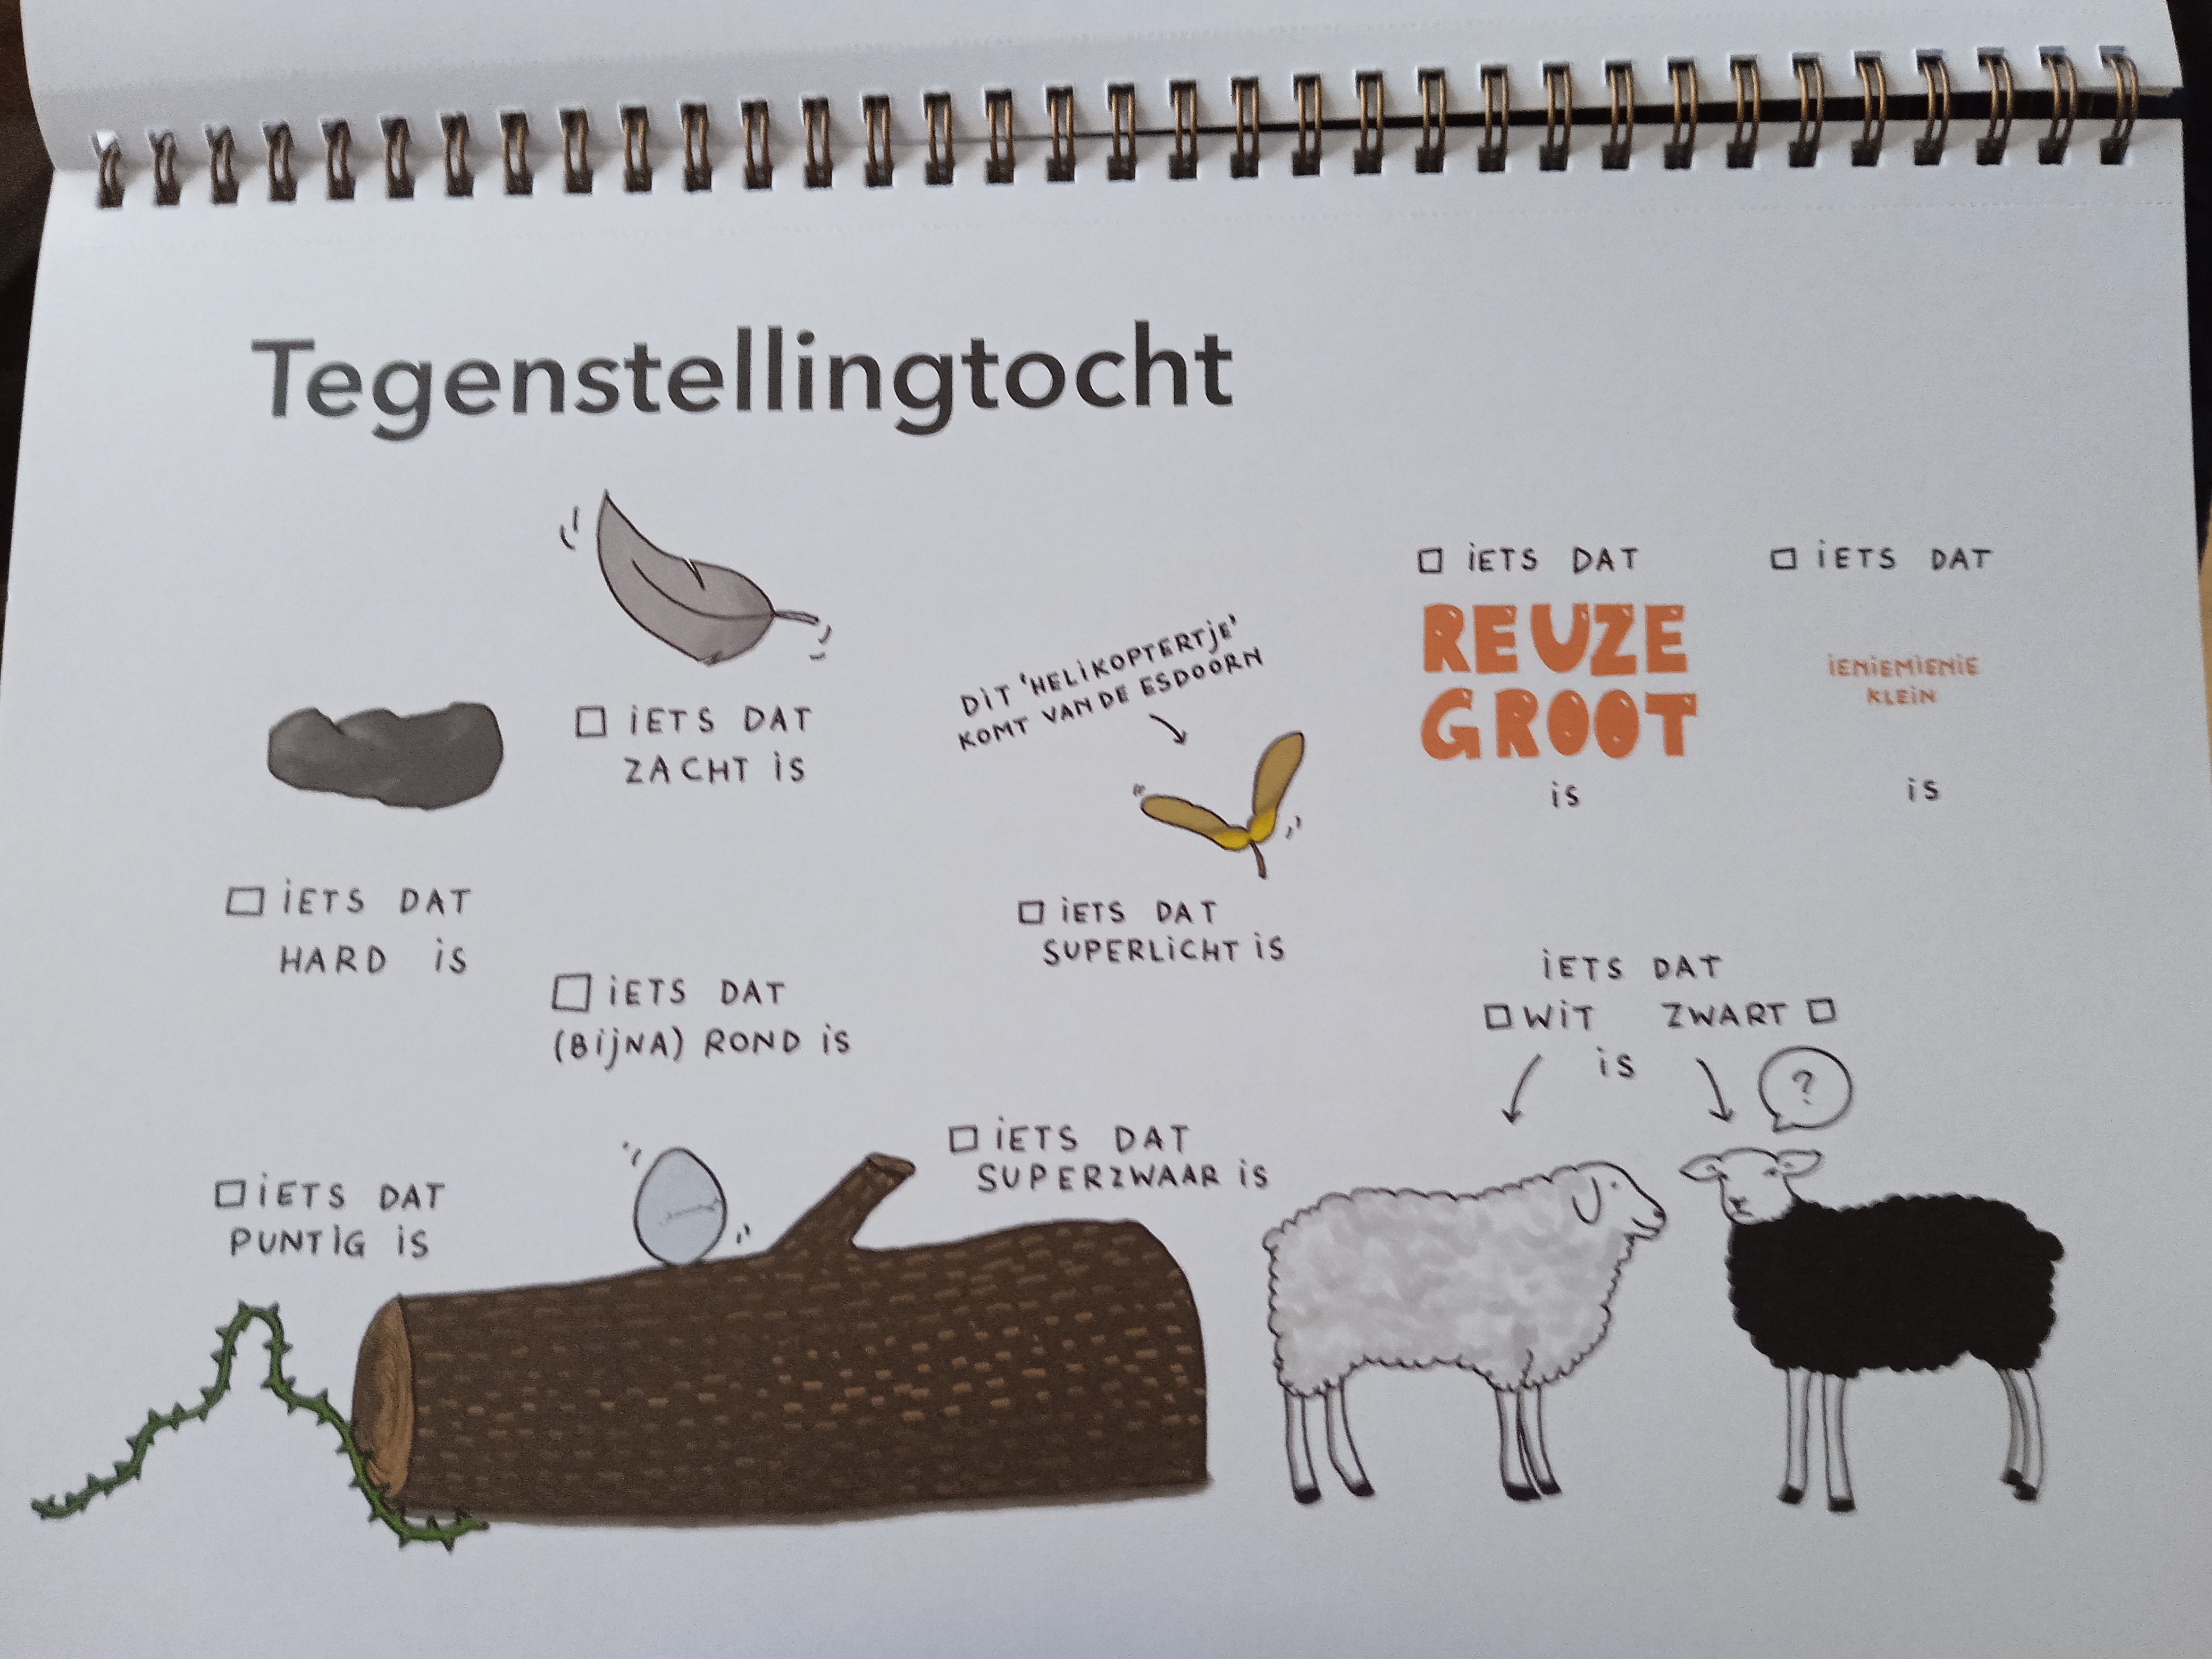 Tegenstellingtocht
iETS DAT
ZACHT iS
iETS DAT
HARD iS
DiT 'HELiKOPTERTjE'
KOMT VAN DE ESDOORN
iETS DAT
SUPERLiCHT iS
iETS DAT
REUZE
GROOT
iS
iETS DAT
iENiEMiENiE
KLEiN
iS
iETS DAT
(BijNA) ROND iS
iETS DAT
PUNTiG iS
iETS DAT
SUPERZWAAR iS
iETS DAT
WiT ZWART
iS
?